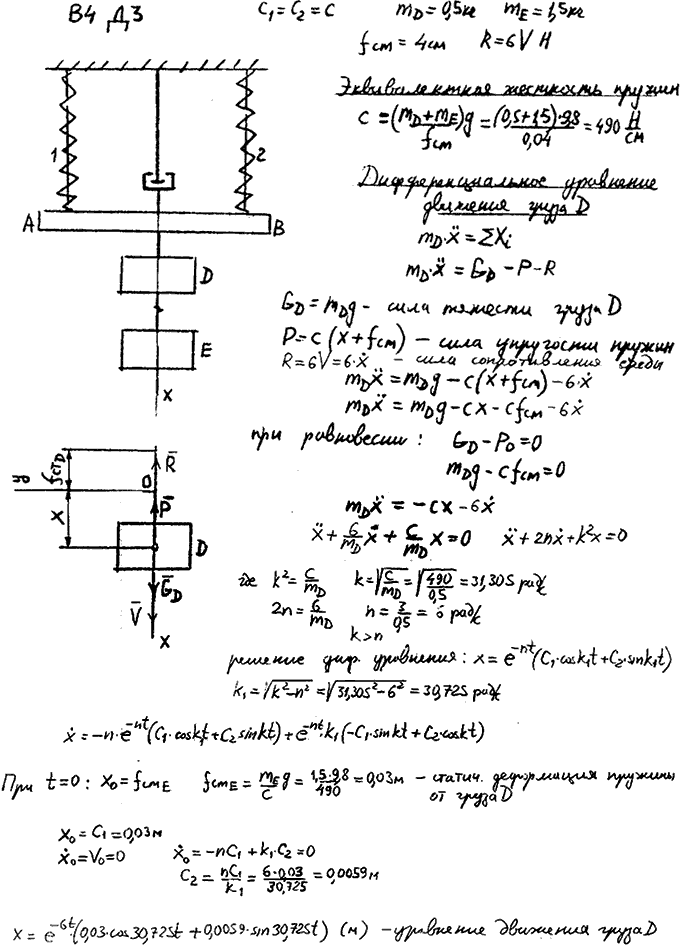 В4 Д3
C₁ = C₂ = C m_D = 0,5кг m_E = 1,5кг
f_cm = 4см R = 6V H
Эквивалентная жесткость пружин
C = (m_D + m_E)g / f_cm = (0,5+1,5)·9,8 / 0,04 = 490 Н/см
1
2
A
B
D
E
x
Дифференциальное уравнение
движения груза D
m_D·ẍ = ΣXi
m_D·ẍ = G_D − P − R
G_D = m_D g - сила тяжести груза D
P = c(x + f_cm) – сила упругости пружин
R = 6V = 6·ẋ – сила сопротивления среды
m_D ẍ = m_D g − c(x + f_cm) − 6·ẋ
m_D ẍ = m_D g − cx − cf_cm − 6ẋ
при равновесии: G_D − P₀ = 0
m_D g − cf_cm = 0
m_D ẍ = −cx − 6ẋ
ẍ + 6/m_D ẋ + c/m_D x = 0 ẍ + 2nẋ + k²x = 0
y
f_стD
R̄
O
P̄
x
D
Ḡ_D
V̄
x
где k² = c/m_D k = √(c/m_D) = √(490/0,5) = 31,305 рад/с
2n = 6/m_D n = 3/0,5 = 6 рад/с
k > n
решение диф. уравнения: x = e^(−nt)(C₁·cosk₁t + C₂·sink₁t)
k₁ = √(k² − n²) = √(31,305² − 6²) = 30,725 рад/с
ẋ = −n·e^(−nt)(C₁·cosk₁t + C₂sinkt) + e^(−nt)·k₁(−C₁·sinkt + C₂·coskt)
При t = 0: x₀ = f_cmE f_cmE = m_E g / c = 1,5·9,8 / 490 = 0,03м – статич. деформация пружины
от груза D
x₀ = C₁ = 0,03м
ẋ₀ = V₀ = 0 ẋ₀ = −nC₁ + k₁·C₂ = 0
C₂ = nC₁/k₁ = 6·0,03 / 30,725 = 0,0059м
x = e^(−6t)(0,03·cos30,725t + 0,0059·sin30,725t) (м) – уравнение движения груза D